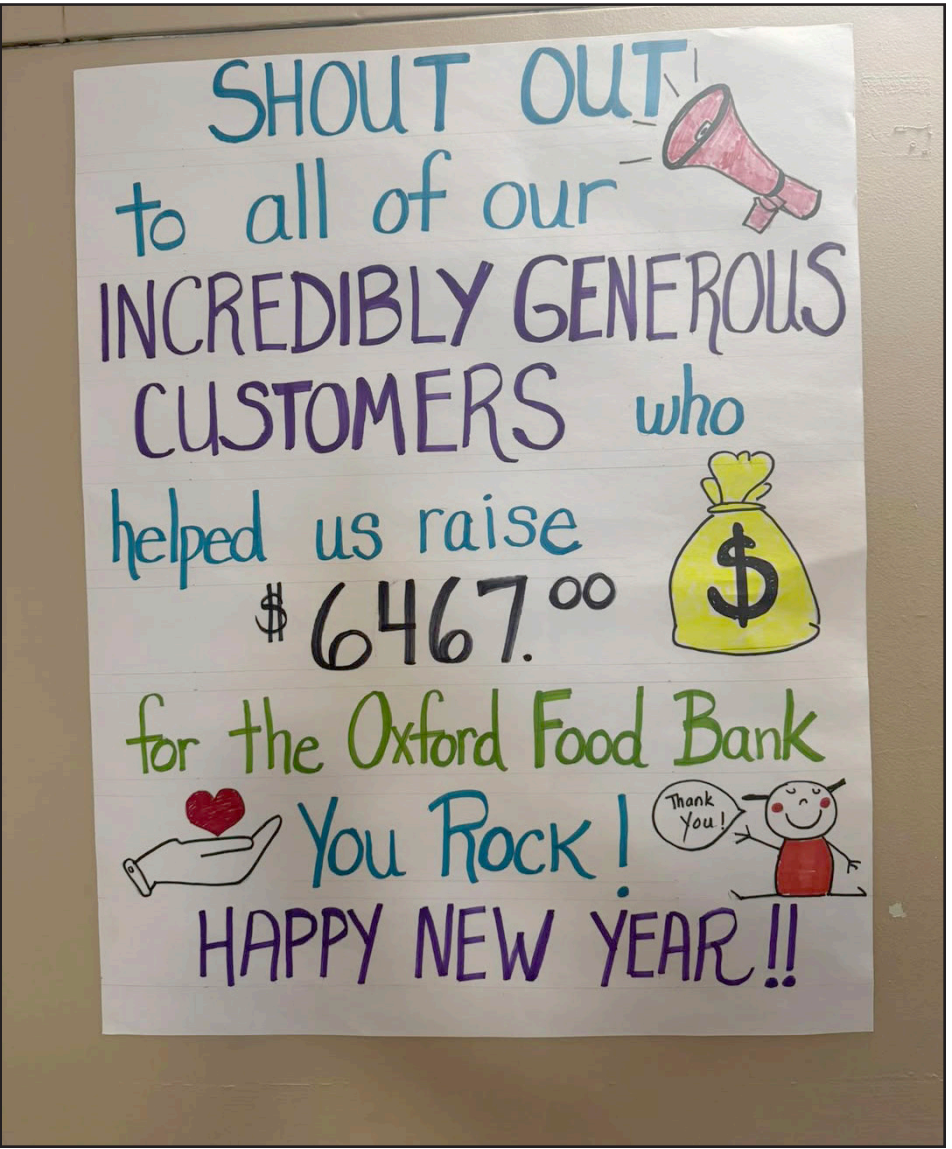 SHOUT OUT
to all of our
INCREDIBLY GENEROUS
CUSTOMERS who
helped us raise
$6467.00
$
for the Oxford Food Bank
You Rock!
Thank
You!
HAPPY NEW YEAR!!